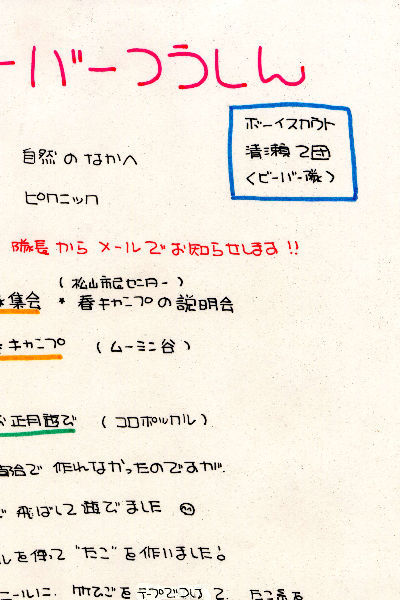 ーバーつうしん
ボーイスカウト
清瀬2団
(ビーバー隊)
自然のなかへ
ピクニック
隊長からメールでお知らせします!!
(松山市民センター)
集会 * 春キャンプの説明会
キャンプ (ムーミン谷)
お正月遊び (コロポックル)
で作れなかったのですが、
飛ばして遊びました
ルを使って"たこ"を作いました!
ニールに、竹ひごをテープでつけて、たこ糸を